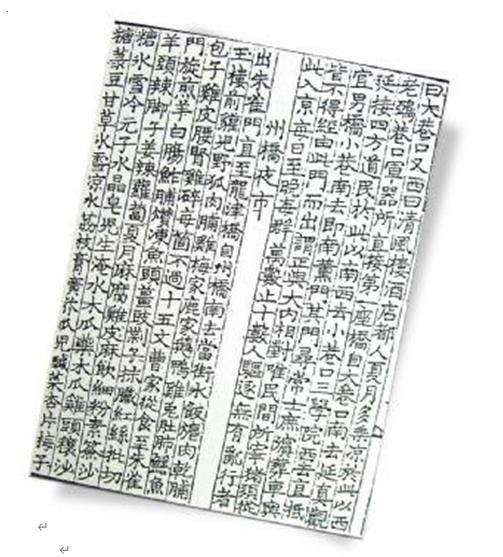 曰大巷口又西曰清風樓酒店都人夏月多乘涼於此以西
老鴉巷口軍器所直接第一座橋自大巷口南去延真觀
延接四方道民於此以南西去小巷口三學院西去直抵
宜男橋小巷南去即南薰門其門尋常士庶殯葬車輿
皆不得經由此門而出謂正與大内相對唯民間所宰猪須從
此入京每日至晚每群萬數止十數人驅逐無有亂行者
州橋夜市
出朱雀門直至龍津橋自州橋南去當街水飯爊肉乾脯
王樓前貛兒野狐肉脯雞梅家鹿家鵝鴨雞兔肚肺鱔魚
包子雞皮腰腎雞碎每箇不過十五文曹家從食至朱雀
門旋煎羊白腸鮓脯㸇凍魚頭薑豉子抹臟紅絲批切
羊頭辣脚子姜辣蘿蔔夏月麻腐雞皮麻飲細粉素簽沙
糖冰雪冷元子水晶皂兒生淹水木瓜藥木瓜雞頭穰沙
糖菉豆甘草冰雪凉水荔枝膏廣芥瓜兒醎菜杏片梅子